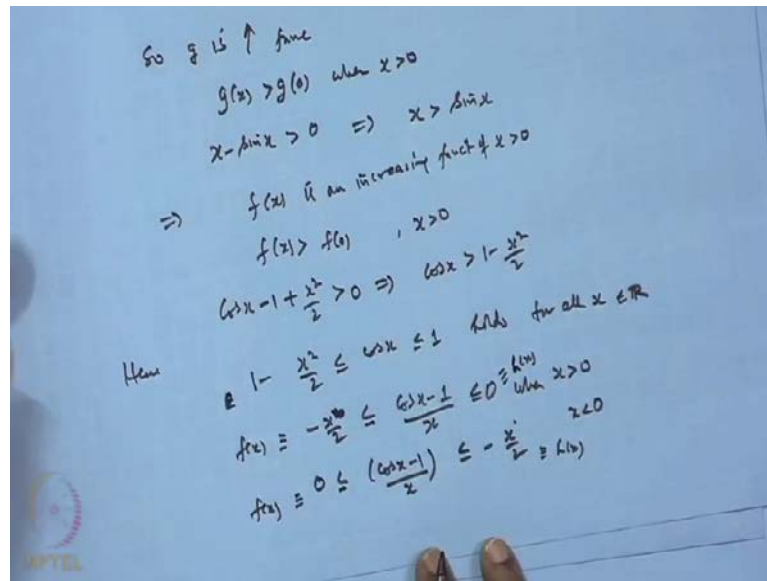 So g is ↑ func
g(x) > g(0) when x>0
x - sinx > 0 => x > sinx
=> f(x) is an increasing funct of x>0
f(x) > f(0) , x>0
cosx - 1 + x²/2 > 0 => cosx > 1 - x²/2
Hence 1 - x²/2 ≤ cosx ≤ 1 holds for all x ∈ R
f(x) ≡ -x/2 ≤ (cosx-1)/x ≤ 0 ≡ h(x) when x>0
f(x) ≡ 0 ≤ (cosx-1)/x ≤ -x/2 ≡ h(x) x<0
NPTEL